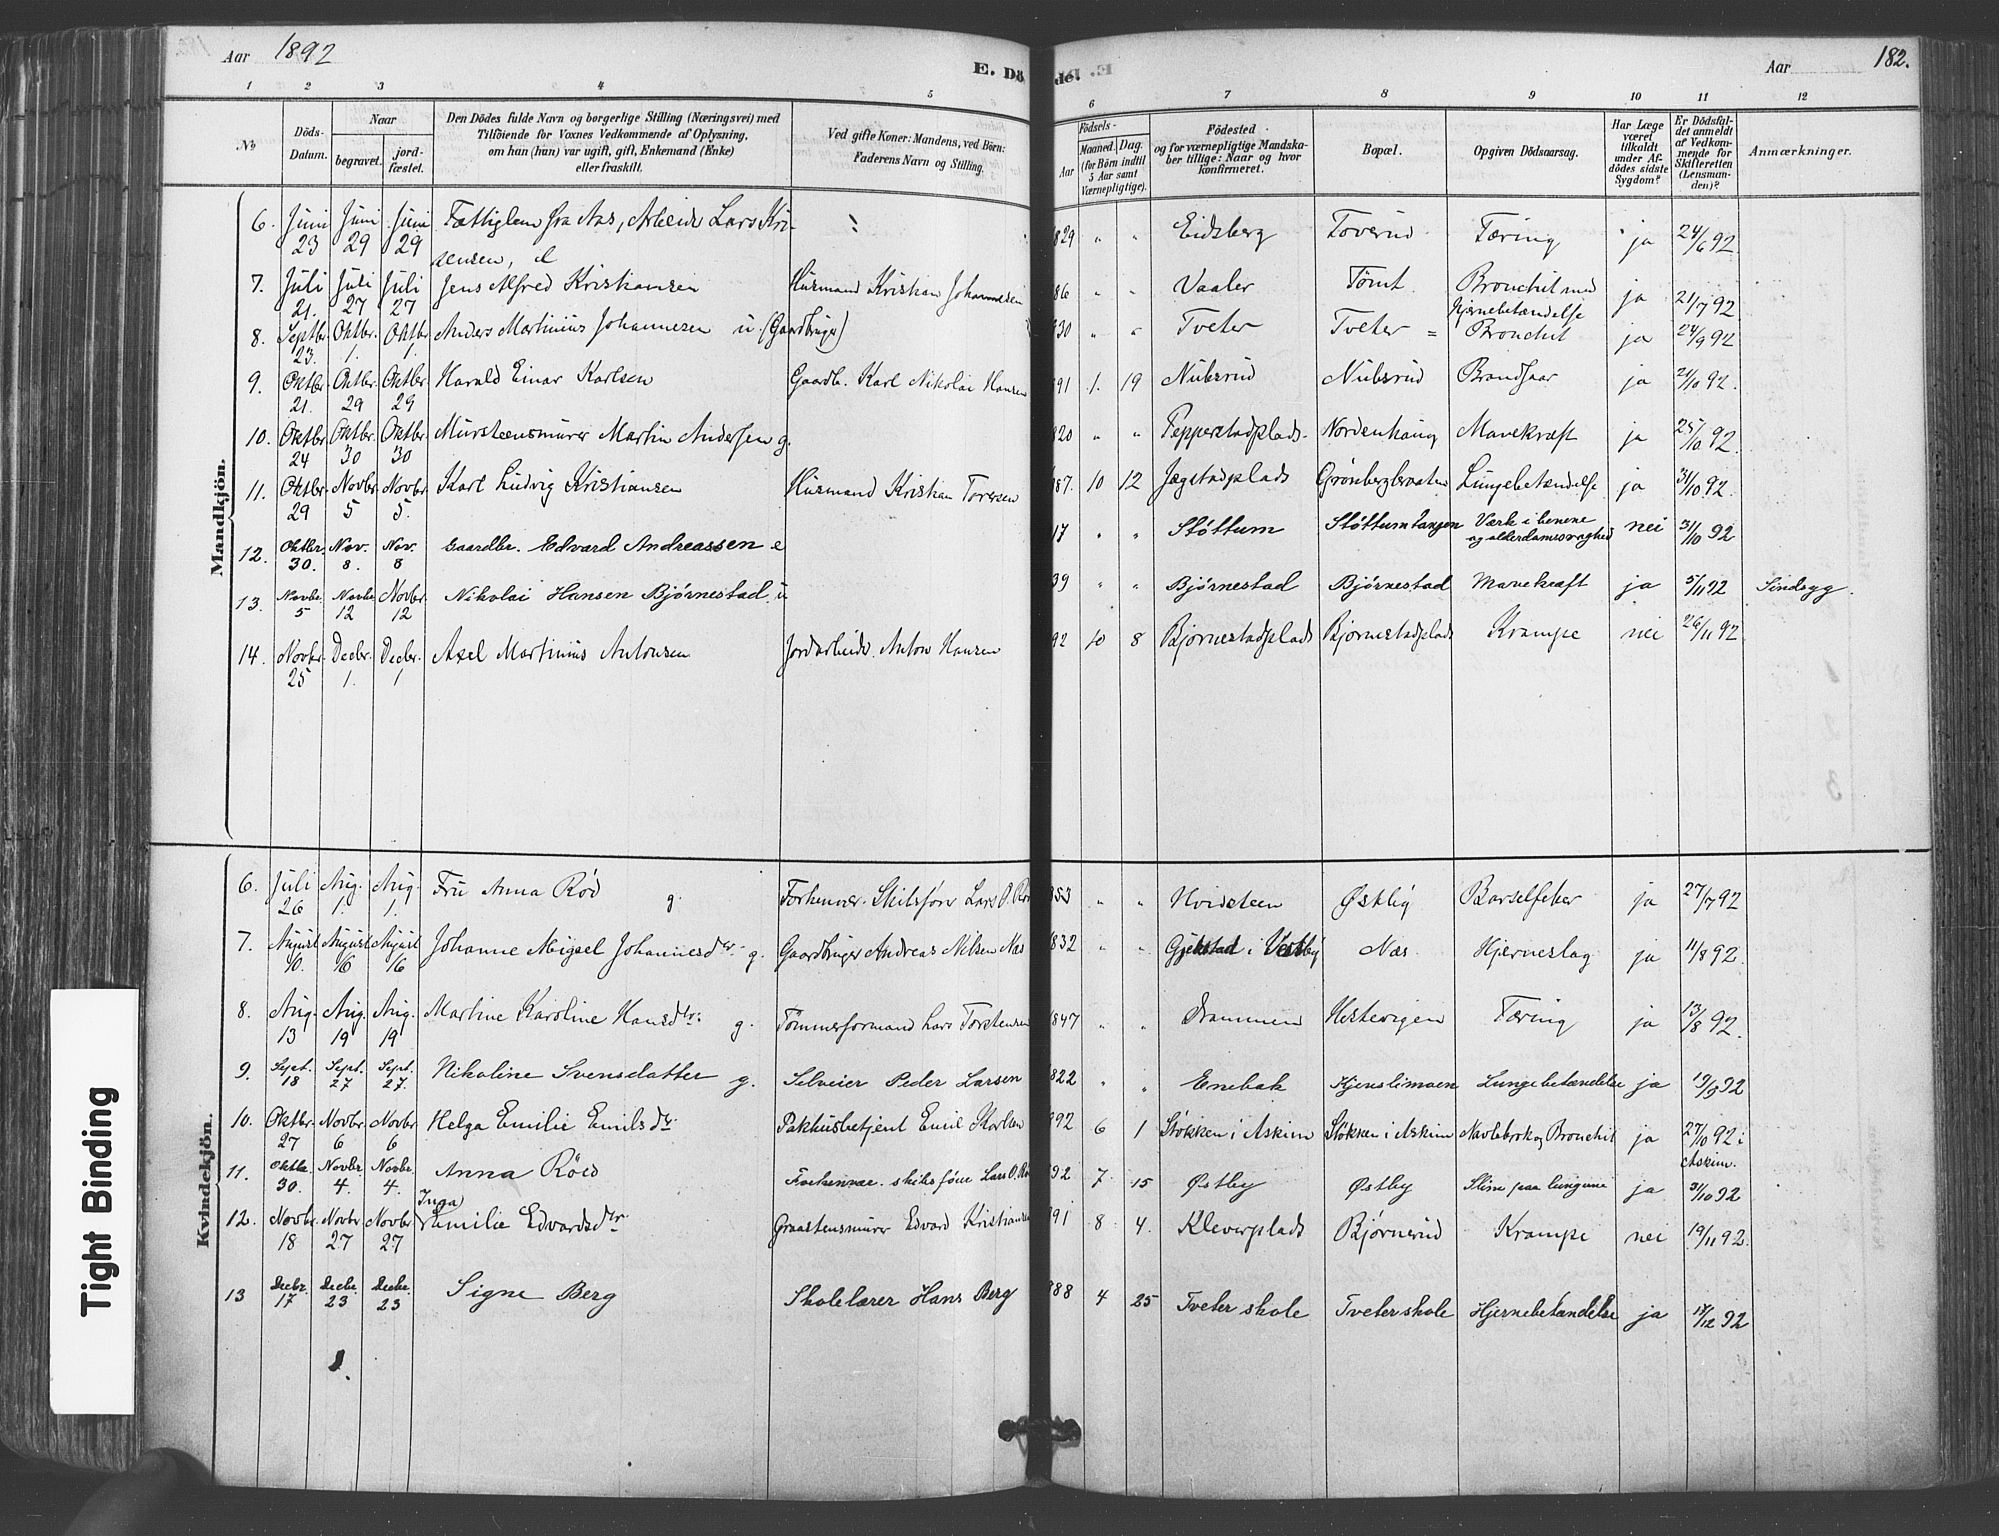 Aar 1892
E. Dö
de.
Aar
182.
1 2 3 4 5 6 7 8 9 10 11 12
No
Döds-Datum.
Naar
begravet.
jord-fæstet.
Den Dödes fulde Navn og borgerlige Stilling (Næringsvei) med
Tilföiende for Voxnes Vedkommende af Oplysning,
om han (hun) var ugift, gift, Enkemand (Enke)
eller fraskilt.
Ved gifte Koner: Mandens, ved Börn:
Faderens Navn og Stilling.
Födsels-
Aar
Maaned. Dag.
(for Börn indtil
5 Aar samt
Værnepligtige).
Födested
og for værnepligtige Mandska-
ber tillige: Naar og hvor
konfirmeret.
Bopæl.
Opgiven Dödsaarsag.
Har Læge
været
tilkaldt
under Af-
dödes sidste
Sygdom?
Er Dödsfal-
det anmeldt
af Vedkom-
mende for
Skifteretten
(Lensman-
den)?
Anmærkninger.
Mandkjön.
6. Juni 23 Juni 29 Juni 29 Fattiglem fra Aas, Arbeider Lars Kri-
stensen, e 829 " " Eidsberg Toverud Tæring ja 24/6 92
7. Juli 21. Juli 27 Juli 27 Jens Alfred Kristiansen Husmand Kristian Johannesen 86 " " Vaaler Tømt Bronchit med
Hjernebetændelse ja 21/7 92
8. Septbr. 23. Oktbr. 1. Oktbr. 1. Anders Martinius Johannesen u. (Gaardbruger) 830 " " Tveter Tveter = Bronchit ja 24/9 92
9. Oktbr. 21. Oktbr. 29 Oktbr. 29 Harald Einar Karlsen Gaardb. Karl Nikolai Hansen 891 1. 19 Nubsrud Nubsrud Brandsaar ja 21/10 92.
10. Oktbr. 24 Oktbr. 30 Oktbr. 30 Murstensmurer Martin Andersen g. 820 " " Pepperstadplads. Nordenhaug Mavekræft ja 25/10 92.
11. Oktbr. 29 Novbr. 5 Novbr. 5. Karl Ludvig Kristiansen Husmand Kristian Toresen 87. 10 12 Jægstadplads Lungebetændelse ja 31/10 92.
12. Oktbr. 30. Nov. 8. Nov. 8 Gaardbr. Edvard Andreassen e 17 " " Støttum Støttumtangen Værk i benene
og alderdomssvaghed nei 31/10 92
13. Novbr. 5 Novbr. 12 Novbr. 12 Nikolai Hansen Bjørnestad u 39 " " Bjørnestad Bjørnestad Mavekræft ja 5/11 92 Sindsyg.
14. Novbr. 25 Decbr. 1. Decbr. 1 Axel Martinius Antonsen Jordarbeider. Anton Hansen 92 10 8 Bjørnestadplads Bjørnestadplads Krampe nei 26/11 92
Kvindekjön.
6. Juli 26 Aug. 1. Aug. 1. Fru Anna Röd g. Forhenvær. Skibsförer Lars O. Röd 853 " " Hvidsteen Østby Barselfeber ja 27/7 92
7. August 10. August 16 August 16 Johanne Johannesdtr. g. Gaardbruger Andreas Nilsen Næs 832 " " Gjelstad i Vestby Næs Hjerneslag ja 11/8 92.
8. Aug. 13 Aug. 19 Aug. 19 Martine Karoline Hansdtr. g. Tömmerformand Lars Torstensen 1847 " " Drammen Hestevigen Tæring ja 13/8 92.
9. Sept. 18 Sept. 27 Sept. 27. Nikoline Svensdatter g. Selveier Peder Larsen 822 " " Enebak Lungebetændelse ja 19/9 92
10. Oktbr. 27 Novbr. 6 Novbr. 6 Helga Emilie Emilsdtr. Pakhusbetjent Emil Karlsen 92 6 1 Støkken i Askim Støkken i Askim Navlebrok og Bronchit ja 27/10 92 i
Askim.
11. Oktbr. 30. Novbr. 4. Novbr. 4. Anna Röed Forhenvær. skibsförer Lars O. Rö 92 7. 15 Østby Østby Slim paa lungerne ja 31/10 92
12. Novbr. 18 Novbr. 27 Novbr. 27 Inga
Emilie Edvardsdtr. Graastensmurer Edvard Kristiansen 91 8 4. Kleverplads Bjørnerud Krampe nei 19/11 92.
13 Decbr. 17 Decbr. 23 Decbr. 23 Signe Berg Skolelærer Hans Berg 888 4 25 Tveter skole Tveter skole Hjernebetændelse ja 17/12 92
Tight Binding